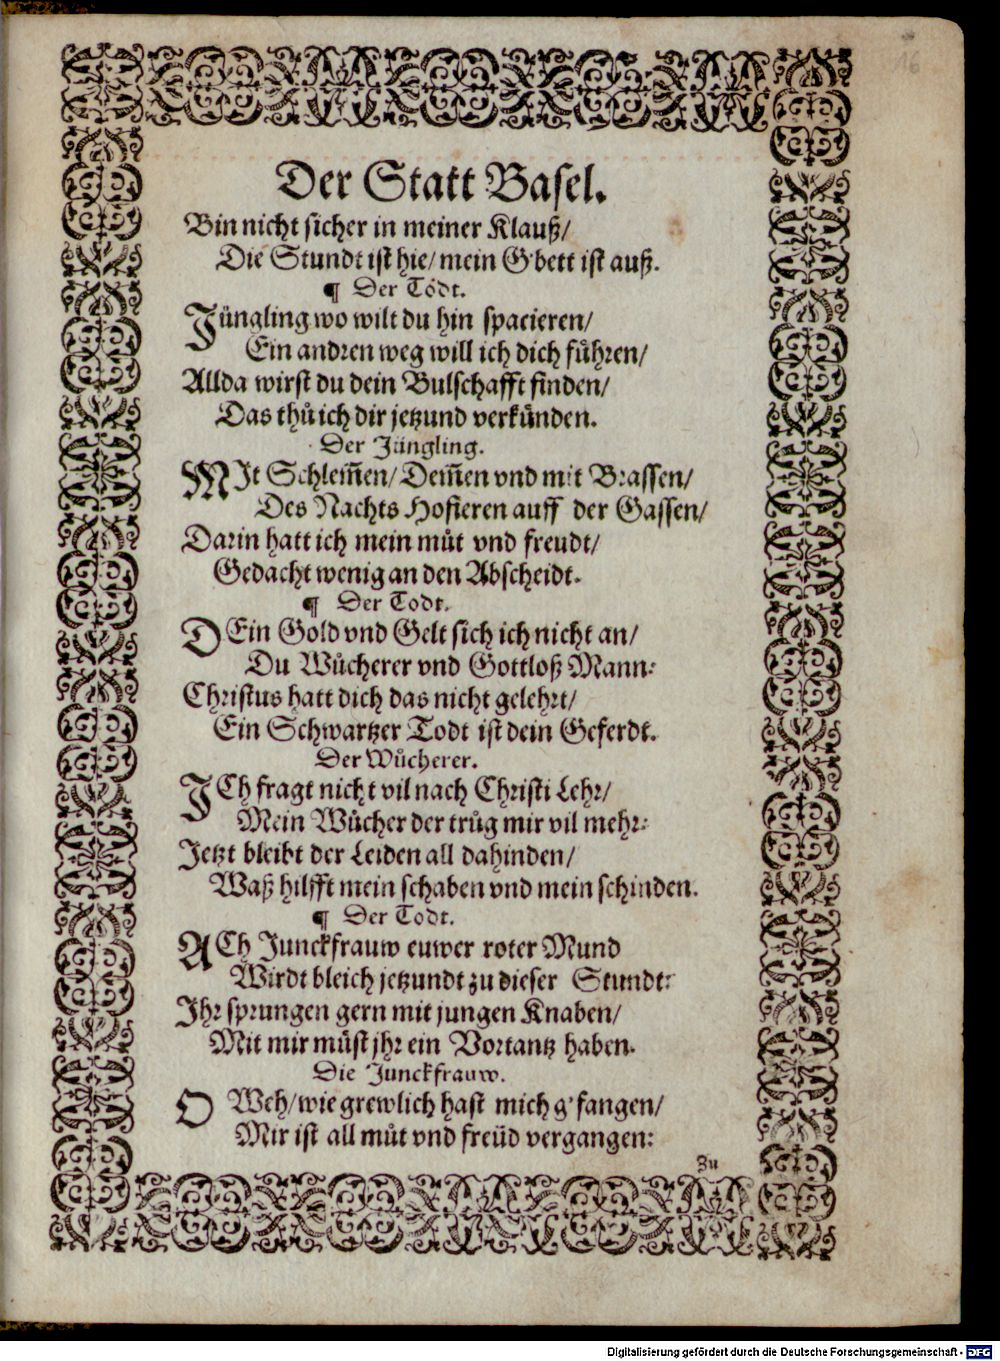 16
Der Statt Basel.
Bin nicht sicher in meiner Klauß/
Die Stundt ist hie/ mein G'bett ist auß.
¶ Der Todt.
Jüngling wo wilt du hin spacieren/
Ein andren weg will ich dich fuͤhren/
Allda wirst du dein Bulschafft finden/
Das thuͦ ich dir jetzund verkünden.
Der Jüngling.
MIt Schlem̃en/ Dem̃en vnd mit Brassen/
Des Nachts Hofieren auff der Gassen/
Darin hatt ich mein muͦt vnd freudt/
Gedacht wenig an den Abscheidt.
¶ Der Todt.
DEin Gold vnd Gelt sich ich nicht an/
Du Wuͦcherer vnd Gottloß Mann:
Christus hatt dich das nicht gelehrt/
Ein Schwartzer Todt ist dein Geferdt.
Der Wuͦcherer.
ICh fragt nicht vil nach Christi Lehr/
Mein Wuͦcher der truͦg mir vil mehr:
Jetzt bleibt der Leiden all dahinden/
Waß hilfft mein schaben vnd mein schinden.
¶ Der Todt.
ACh Junckfrauw euwer roter Mund
Wirdt bleich jetzundt zu dieser Stundt:
Ihr sprungen gern mit jungen Knaben/
Mit mir müst jhr ein Vortantz haben.
Die Junckfrauw.
O Weh/ wie grewlich hast mich g'fangen/
Mir ist all muͦt vnd freüd vergangen:
Zu
Digitalisierung gefördert durch die Deutsche Forschungsgemeinschaft - DFG